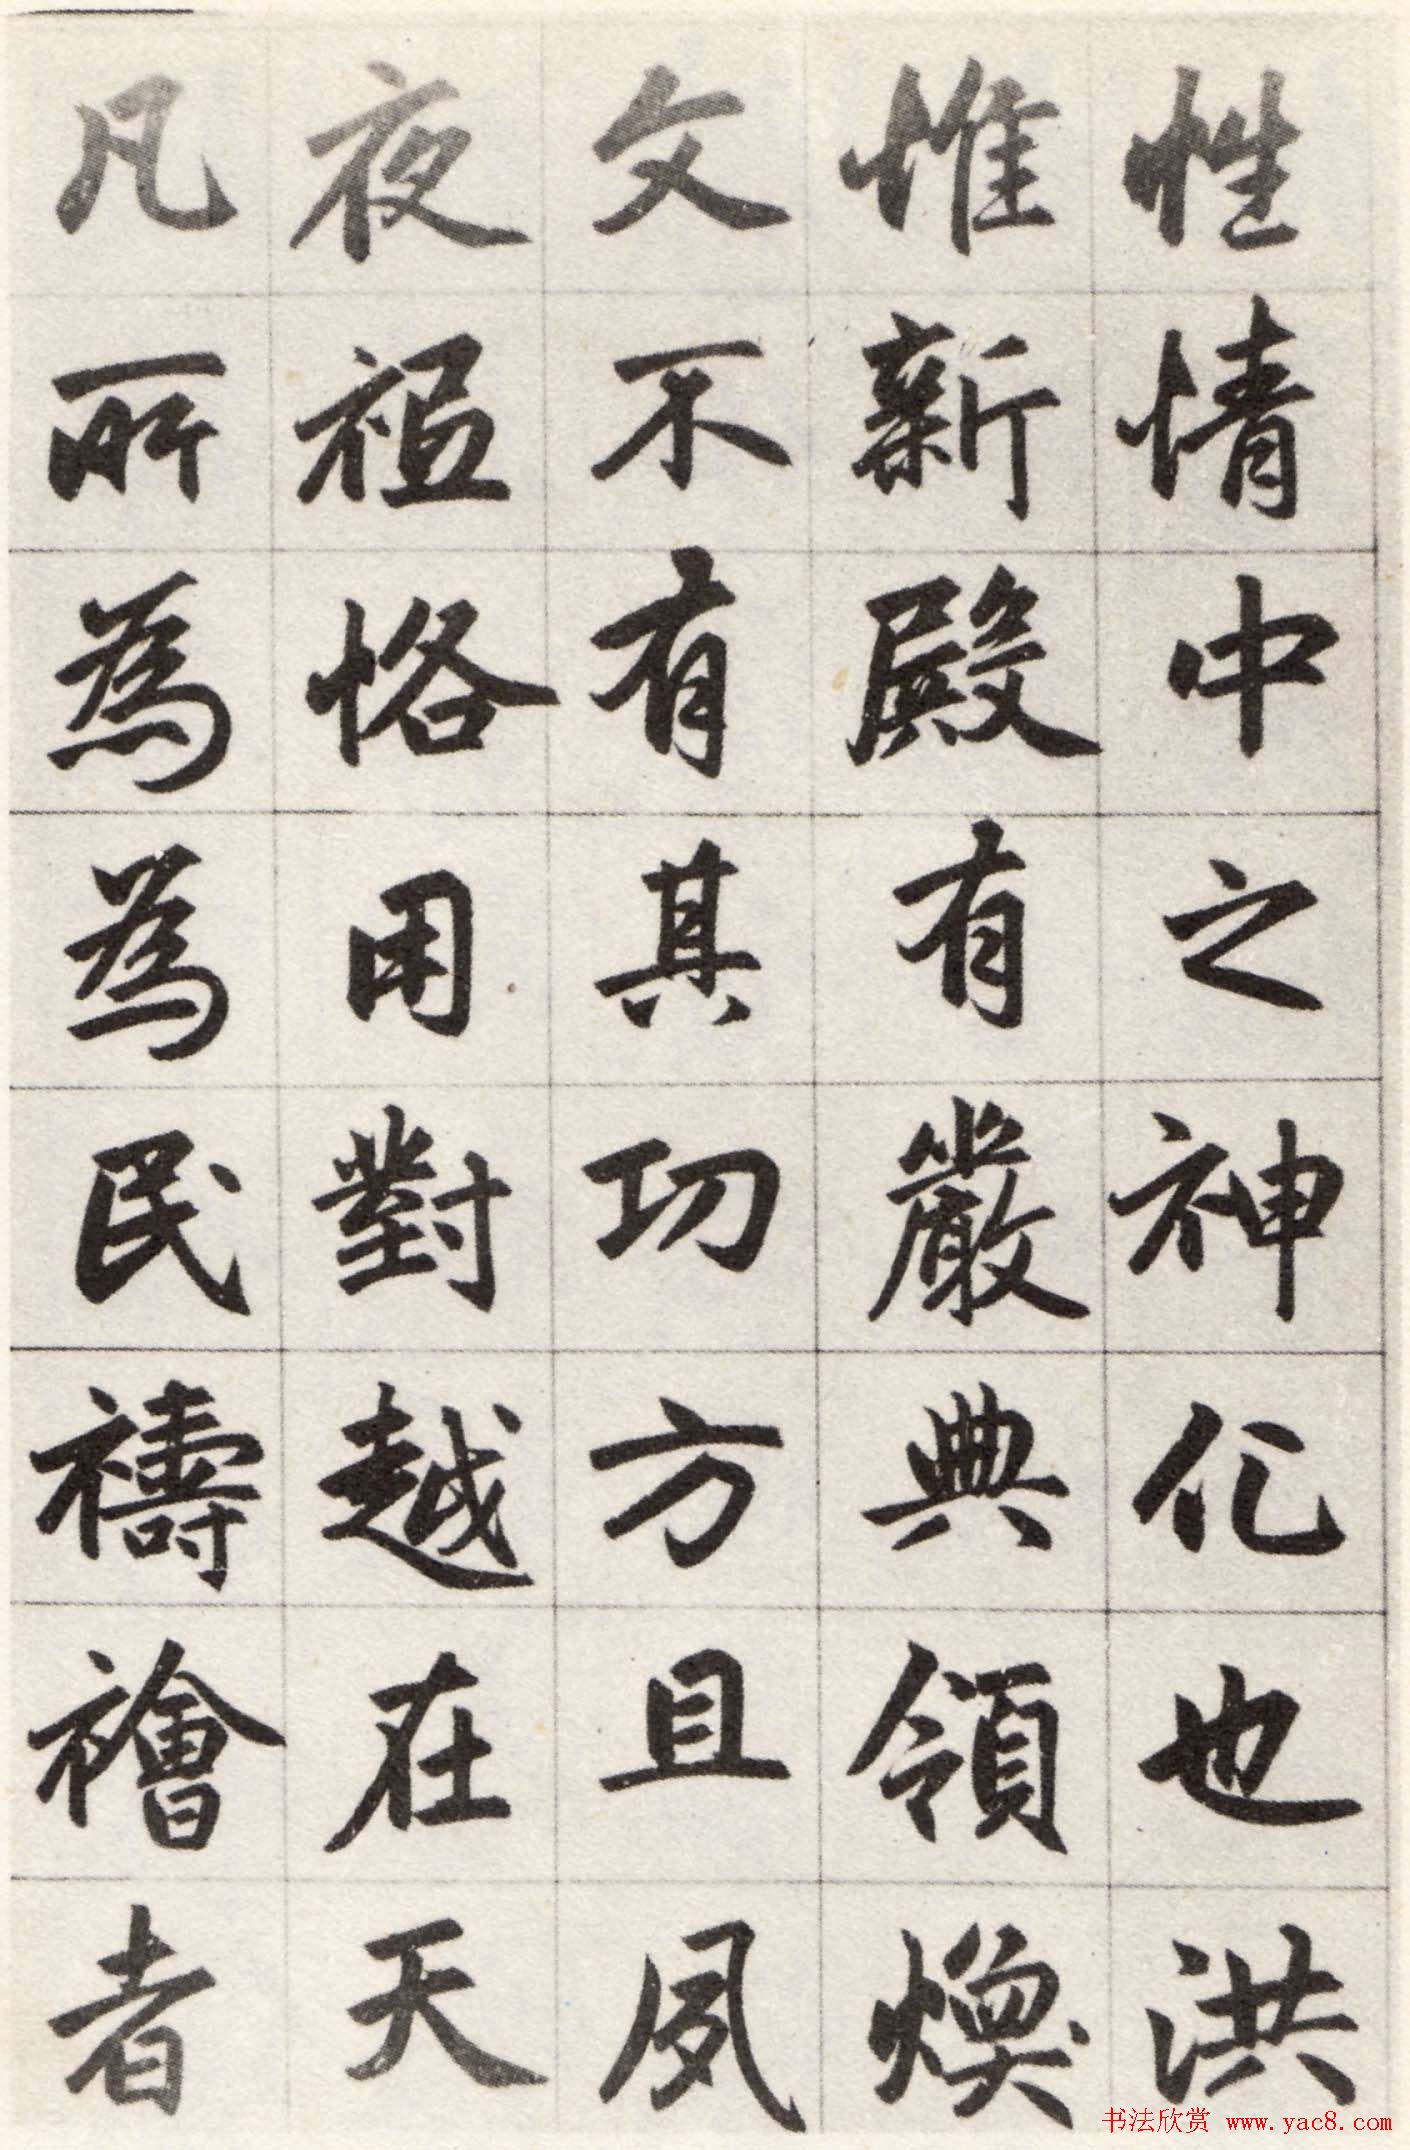 性情中之神化也洪
惟新殿有嚴典領煥
文不有其功方且夙
夜祗恪用對越在天
凡所為為民禱禬者
书法欣赏 www.yac8.com